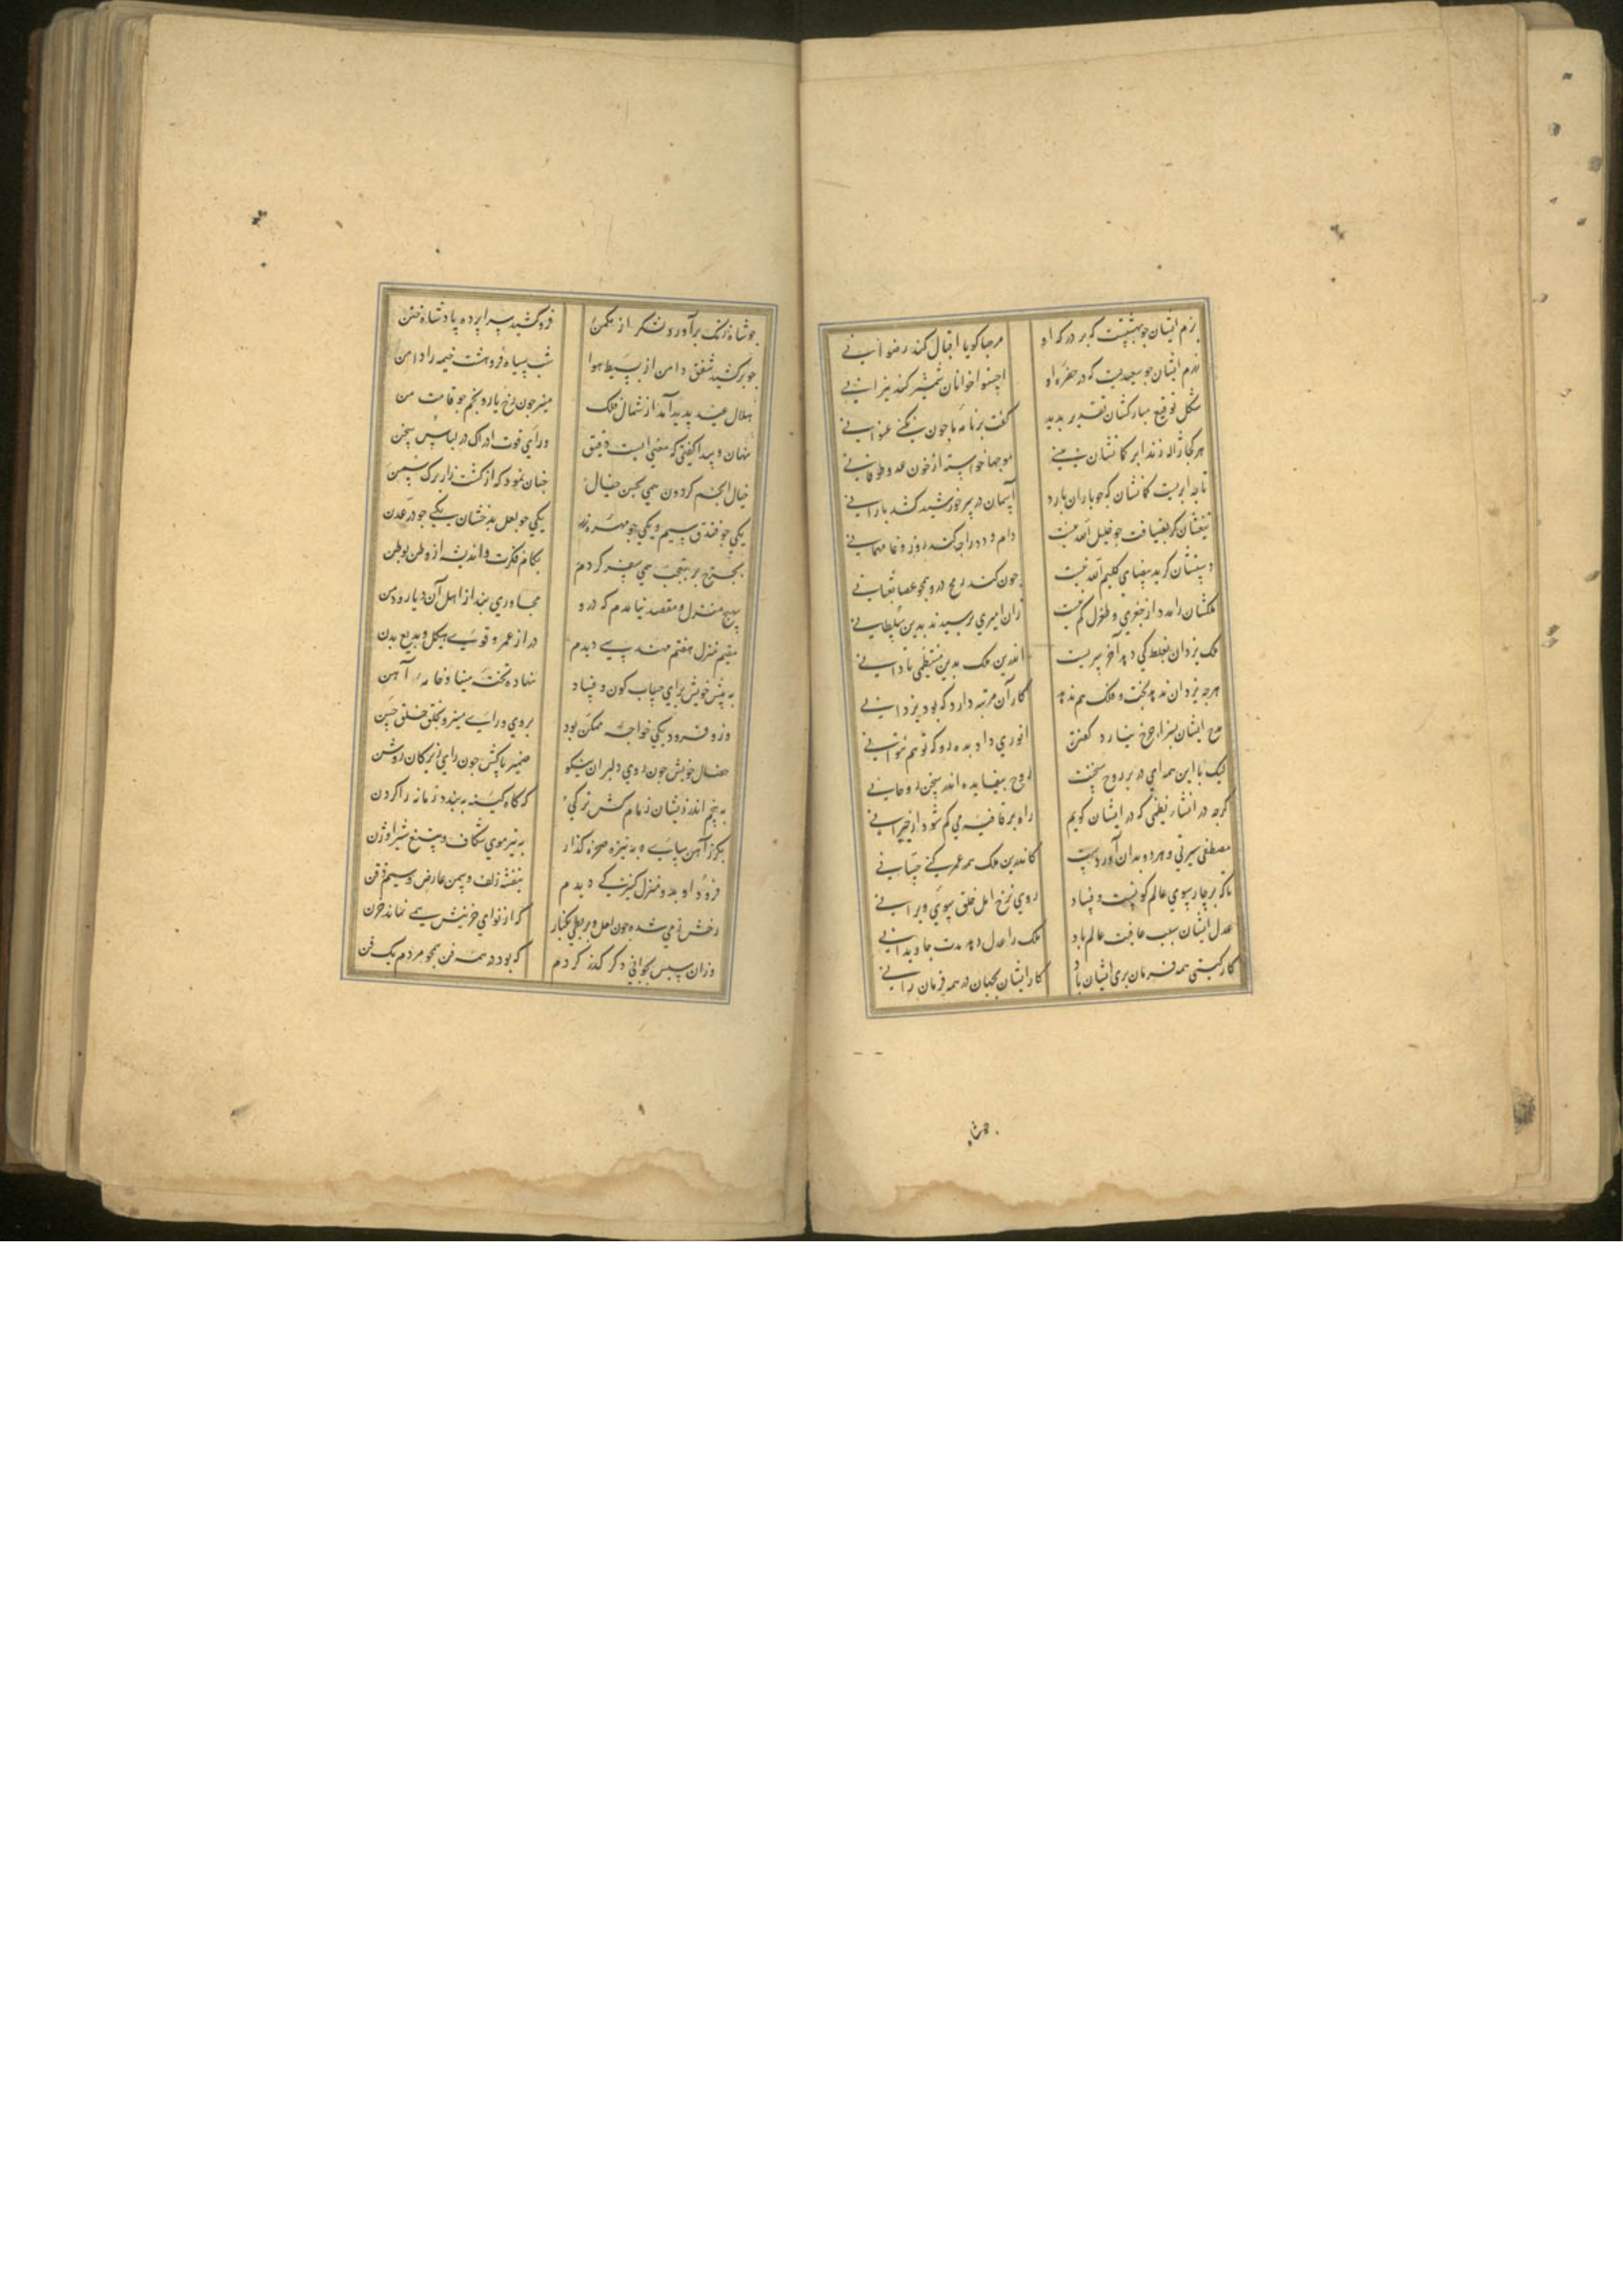 بزم ایشان جو بهشتیست که بر درکه او مرحبا کویا اقبال کند رضوانی
رزم ایشان جو سعیریست که در حفره او اخسئوا خوانان شمشیر کند نیرانی
شکل توقیع مبارکشان تقدیر بدید کفت برنامه ما جون نکنی عنوانی
هر کجا ژاله زند ابر کمانشان بینی موجها خواسته از خون عدو طوفانی
تا جه ابریست کمانشان که جو باران بارد آسمان در سر خورشید کشد بارانی
تیغشان کر بضیافت جو خلیل الله نیست دام و دد را جه کند روز وغا مهمانی
دستشان کر ید بیضای کلیم الله نیست جون کند رمح درو همجو عصا ثعبانی
ملکشان را مدد از جغری و طغرل کم نیست زان امیری برسیدند بدین سلطانی
ملک یزدان بغلط کی دهد آخر سریست اندرین ملک بدین منتظمی تا دانی
هرجه یزدان ندهد بخت و فلک هم ندهد کار آن مرتبه دارد که بود یزدانی
مدح ایشان بسزا جرخ نیارد کفتن انوری داد بده رو که تو هم نتوانی
لیک با این همه ای در بر روح سخنت روح بیفایده اندر سخن روحانی
کرجه در انشاد نظمی که در ایشان کویم راه بر قافیه می کم شود از حیرانی
مصطفی سیرتی و هردو بدان آوردست کاندرین ملک همه عمر کنی حسانی
تا که بر چار سوی عالم کونست و فساد روی نرخ امل خلق بسوی ویرانی
عدل ایشان سبب عافیت عالم باد ملک را عدل دهد مدت جاویدانی
کار کیتی همه فرمان بری ایشان باد کار ایشان بجهان در همه فرمان رانی
جو شاه زنک برآورد لشکر از مکمن فرو کشید سراپرده پادشاه ختن
جو برکشید شفق دامن از بسیط هوا شب سیاه فروهشت خیمه را دامن
هلال عید پدید آمد از شمال فلک منیر جون رخ یار و بخم جو قامت من
نهان و پیدا کفتی که معنی ایست دقیق ورای قوت ادراک در لباس سخن
خیال انجم کردون همی بحسن خیال جنان نمود که از کشت زار برک سمن
یکی جو فندق سیم و یکی جو مهره زر یکی جو لعل بدخشان یکی جو در عدن
بجرخ بر بتعجب همی سفر کردم بکام فکرت و اندیشه از وطن بوطن
بهیج منزل و مقصد نیامدم که درو مجاوری بند از اهل آن دیار و دمن
مقیم منزل هفتم مهندسی دیدم دراز عمر و قوی هیکل و بدیع بدن
به پیش خویش برای حساب کون و فساد نهاده تخته مینا و خامه آهن
وزو فرود یکی خواجه ممکن بود بروی و رای منیر و بخلق خلق حسن
خصال خویش جون روی دلبران نیکو ضمیر پاکش جون رای زیرکان روشن
به پنجم اندر زیشان زمام کش ترکی که کاه کینه ببندد زمانه را کردن
بکرز آهن سای و بنیزه صخره کذار به تیر موی شکاف و بتیغ شیر اوژن
فرود او بدو منزل کنیزکی دیدم بنفشه زلف و سمن عارض و سیم ذقن
رخش ز می شده جون لعل و بربطی بکنار که از نوای حزینش همی نماند حزن
وزان سپس بجوانی دکر کذر کردم که بود در همه فن همجو مردم یک فن